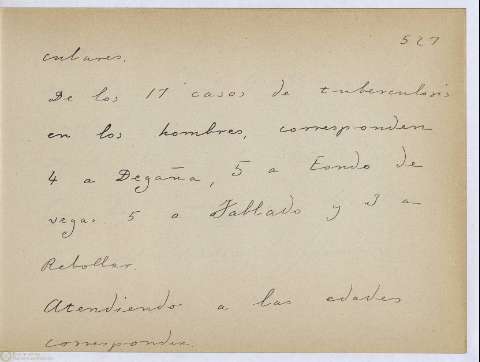 527
culares.
De los 17 casos de tuberculosis
en los hombres, corresponden
4 a Degaña, 5 a Fondo de
vega. 5 a Tablado y 3 a
Rebollar.
Atendiendo a las edades
corresponden.